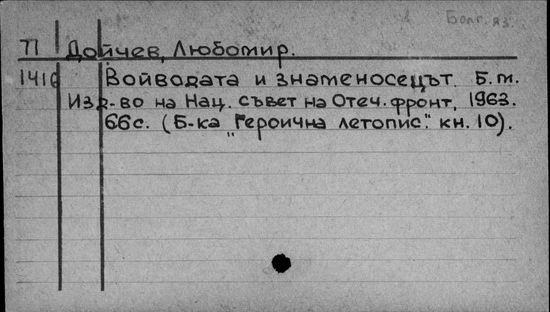 Болг. яз.
П Дойчев, Любомир.
1416 Войводата и знаменосецът. Б.м.
Изд-во на Нац. съвет на Отеч. фронт, 1963.
66с. (Б-ка „Героична летопис." кн. 10).